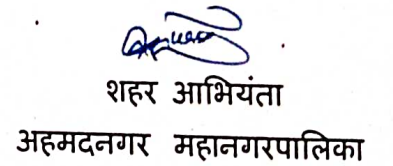 शहर आभियंता
अहमदनगर महानगरपालिका